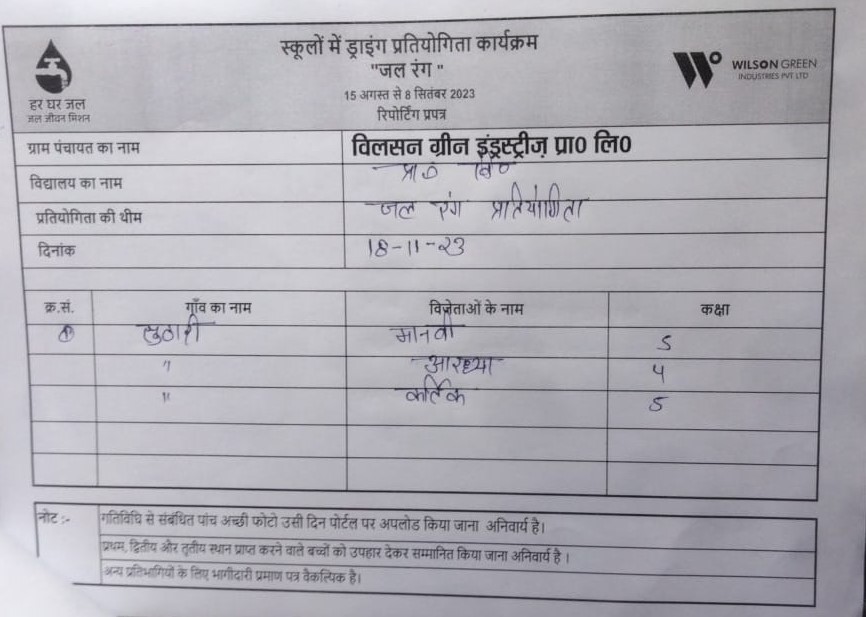 स्कूलों में ड्राइंग प्रतियोगिता कार्यक्रम
"जल रंग "
15 अगस्त से 8 सितंबर 2023
रिपोर्टिंग प्रपत्र
हर घर जल
जल जीवन मिशन
WILSON GREEN
INDUSTRIES PVT LTD
ग्राम पंचायत का नाम विलसन ग्रीन इंड्रस्ट्रीज़ प्रा0 लि0
विद्यालय का नाम प्रा० वि०
प्रतियोगिता की थीम जल रंग प्रतियोगिता
दिनांक 18-11-23
क्र.सं. गाँव का नाम विजेताओं के नाम कक्षा
① मानवी 5
" आरध्या 4
" कार्तिक 5
नोट :- गतिविधि से संबंधित पांच अच्छी फोटो उसी दिन पोर्टल पर अपलोड किया जाना अनिवार्य है।
प्रथम, द्वितीय और तृतीय स्थान प्राप्त करने वाले बच्चों को उपहार देकर सम्मानित किया जाना अनिवार्य है ।
अन्य प्रतिभागियों के लिए भागीदारी प्रमाण पत्र वैकल्पिक है।